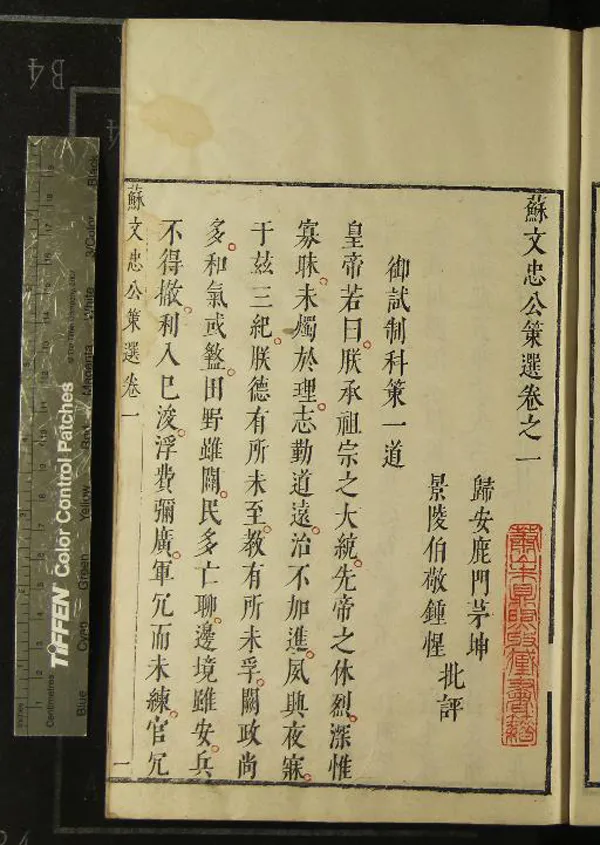 蘇文忠公策選卷之一
歸安鹿門茅坤
景陵伯敬鍾惺
批評
御試制科策一道
皇帝若曰朕承祖宗之大統先帝之休烈深惟
寡昧未燭於理志勤道遠治不加進夙興夜寐
于玆三紀朕德有所未至教有所未孚闕政尚
多和氣或盭田野雖闢民多亡聊邊境雖安兵
不得撤利入已浚浮費彌廣軍冗而未練官冗
蘇文忠公策選卷一
一
B4
TIFFEN Color Control Patches
Centimetres
Inches
Blue
Cyan
Green
Yellow
Red
Magenta
White
3/Color
Black